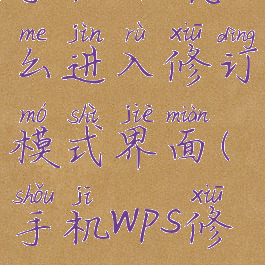 me jìn rù xiū dìng
么进入修订
mó shì jiè miàn
模式界面(
shǒu jī xiū
手机WPS修